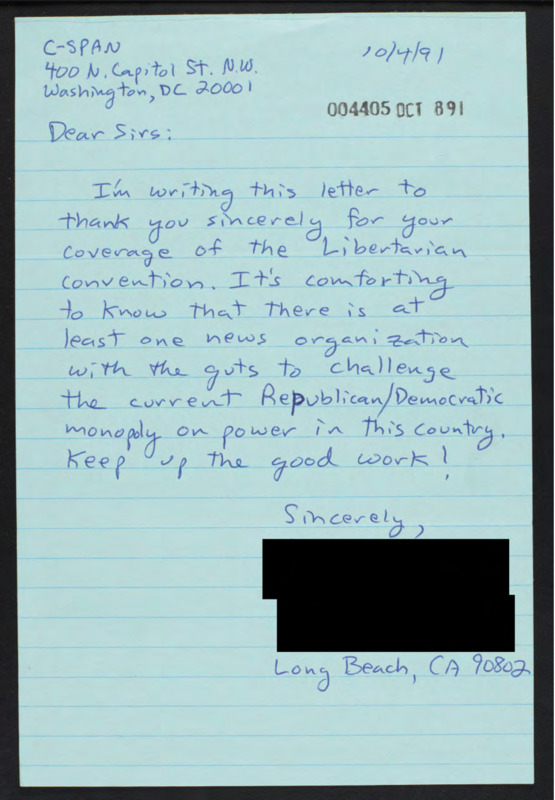 C-SPAN
400 N. Capitol St. N.W.
Washington, DC 20001
10/4/91
004405 OCT 8 91
Dear Sirs:
I'm writing this letter to
thank you sincerely for your
coverage of the Libertarian
convention. It's comforting
to know that there is at
least one news organization
with the guts to challenge
the current Republican/Democratic
monopoly on power in this country.
Keep up the good work!
Sincerely,
Long Beach, CA 90802